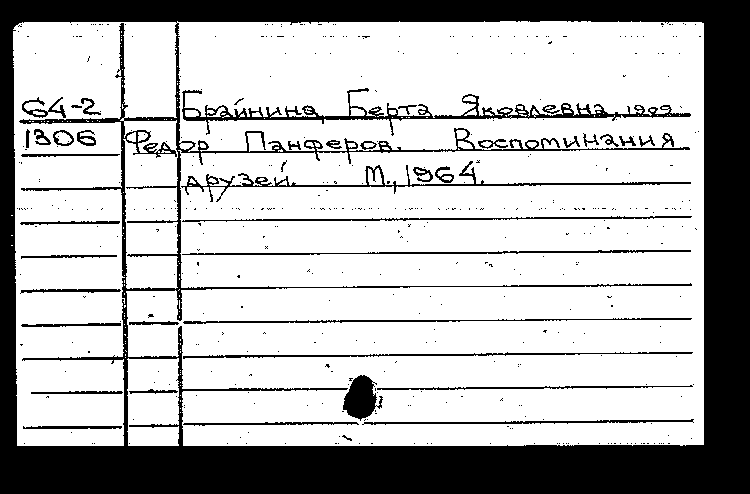 64-2 Брайнина, Берта Яковлевна, 1909-
1306 Федор Панферов. Воспоминания
друзей. М., 1964.